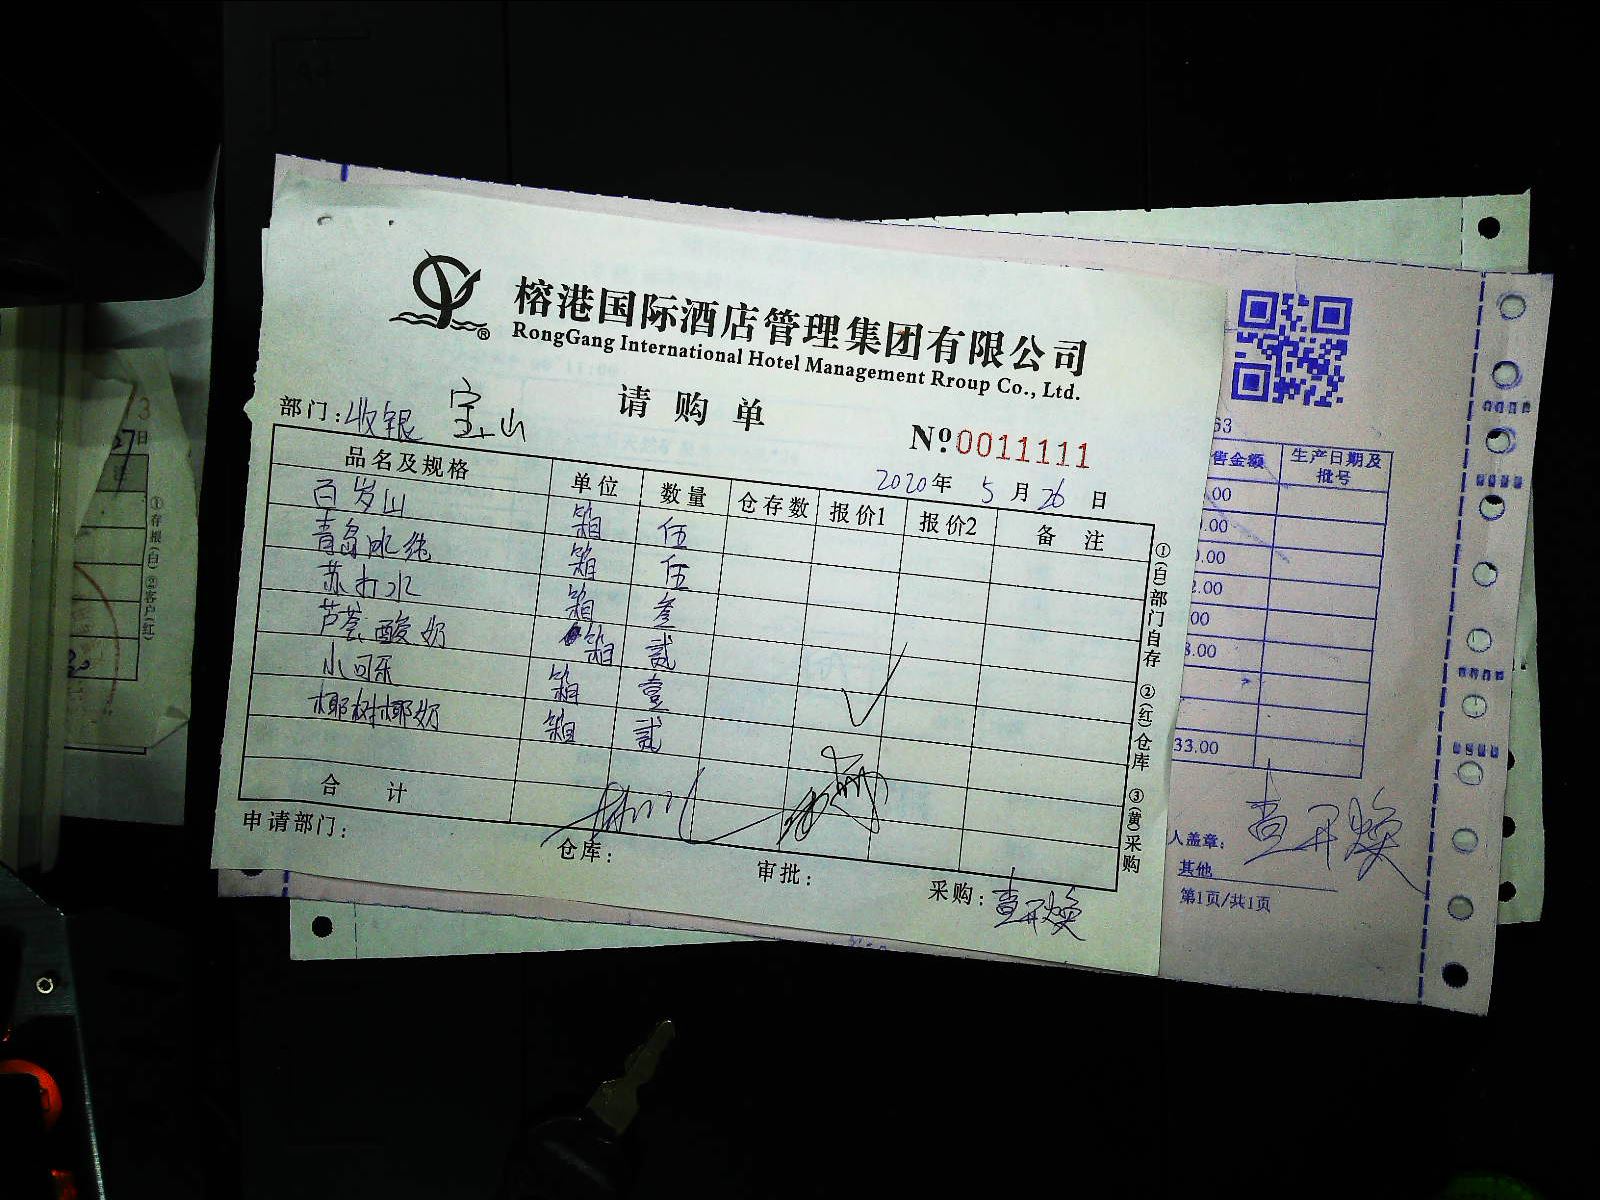 榕港国际酒店管理集团有限公司
RongGang International Hotel Management Rroup Co., Ltd.
请购单
部门:收银 宝山
№.0011111
2020年 5月26日
品名及规格 单位 数量 仓存数 报价1 报价2 备注
百岁山 箱 伍
青岛冰纯 箱 伍
苏打水 箱 叁
芦荟酸奶 箱 贰
小可乐 箱 壹
椰树椰奶 箱 贰
合计
申请部门:
仓库:
审批:
采购:查开焕
①(白)部门自存 ②(红)仓库 ③(黄)采购
63
售金额 生产日期及批号
.00
.00
.00
2.00
.00
8.00
33.00
人盖章: 查开焕
其他
第1页/共1页
3
27日
①存根(白) ②客户(红)